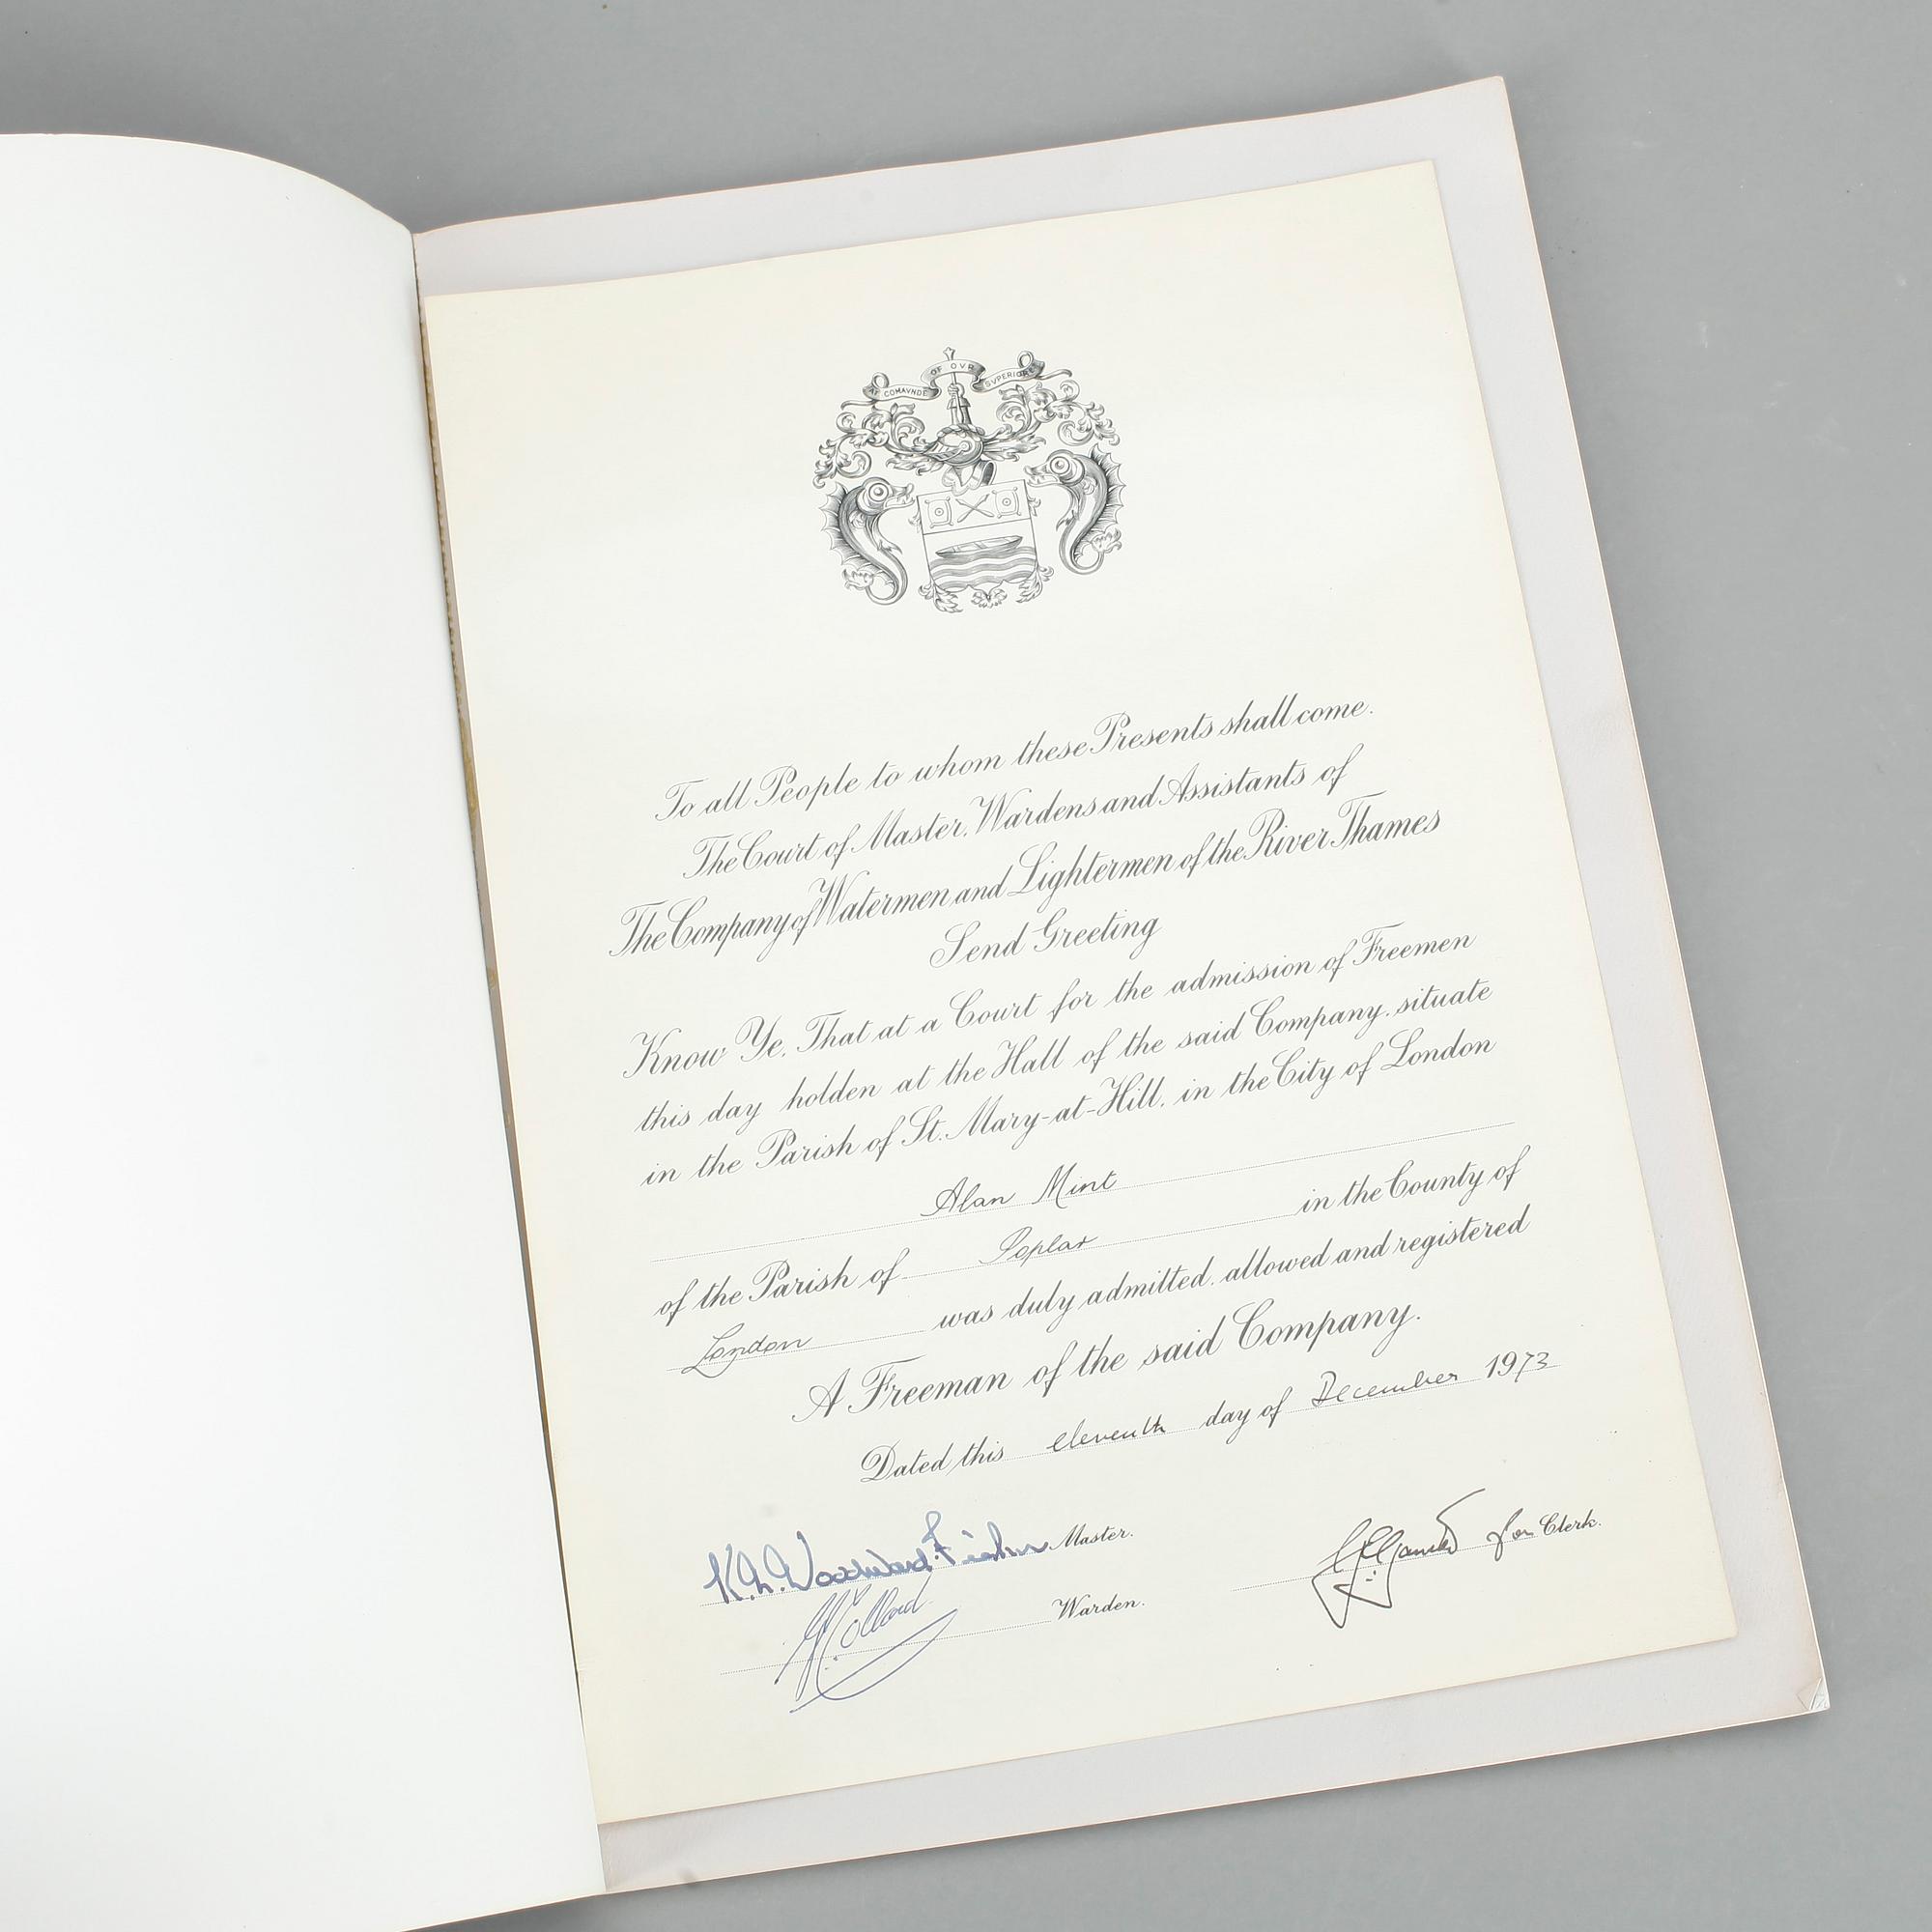 AT COMAVNDE OF OVR SVPERIORS
To all People to whom these Presents shall come.
The Court of Master, Wardens and Assistants of
The Company of Watermen and Lightermen of the River Thames
Send Greeting
Know Ye, That at a Court for the admission of Freemen
this day holden at the Hall of the said Company, situate
in the Parish of St. Mary-at-Hill, in the City of London
Alan Mint
of the Parish of Poplar in the County of
London was duly admitted, allowed and registered
A Freeman of the said Company.
Dated this eleventh day of December 1973
Woodward Fisher Master.
for Clerk.
Warden.